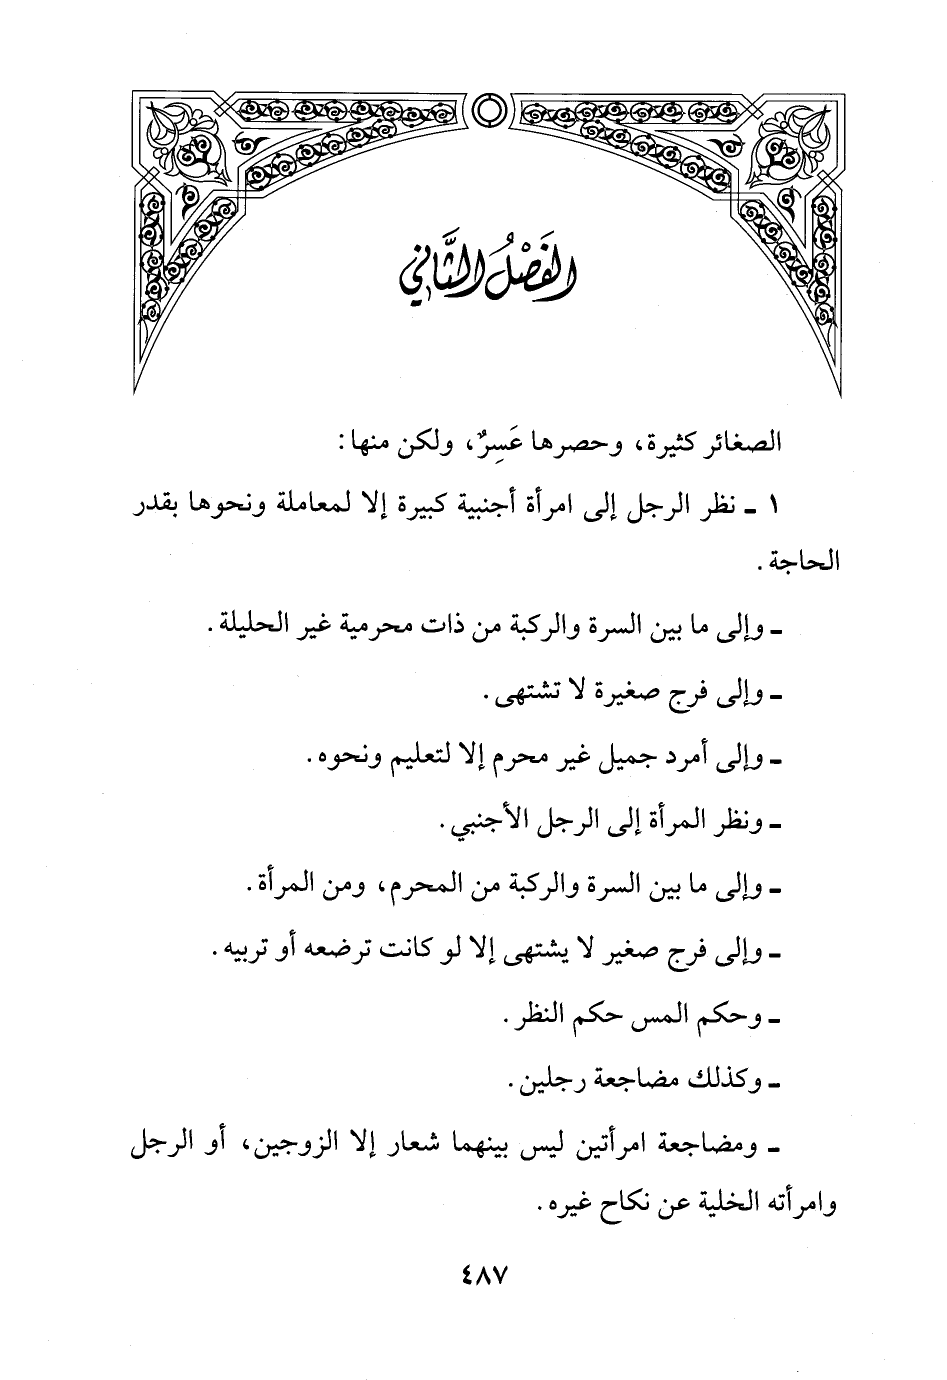 الفَصْلُ الثَّانِي
الصغائر كثيرة، وحصرها عَسِرٌ، ولكن منها:
١ ـ نظر الرجل إلى امرأة أجنبية كبيرة إلا لمعاملة ونحوها بقدر
الحاجة.
ـ وإلى ما بين السرة والركبة من ذات محرمية غير الحليلة.
ـ وإلى فرج صغيرة لا تشتهى.
ـ وإلى أمرد جميل غير محرم إلا لتعليم ونحوه.
ـ ونظر المرأة إلى الرجل الأجنبي.
ـ وإلى ما بين السرة والركبة من المحرم، ومن المرأة.
ـ وإلى فرج صغير لا يشتهى إلا لو كانت ترضعه أو تربيه.
ـ وحكم المس حكم النظر.
ـ وكذلك مضاجعة رجلين.
ـ ومضاجعة امرأتين ليس بينهما شعار إلا الزوجين، أو الرجل
وامرأته الخلية عن نكاح غيره.
٤٨٧